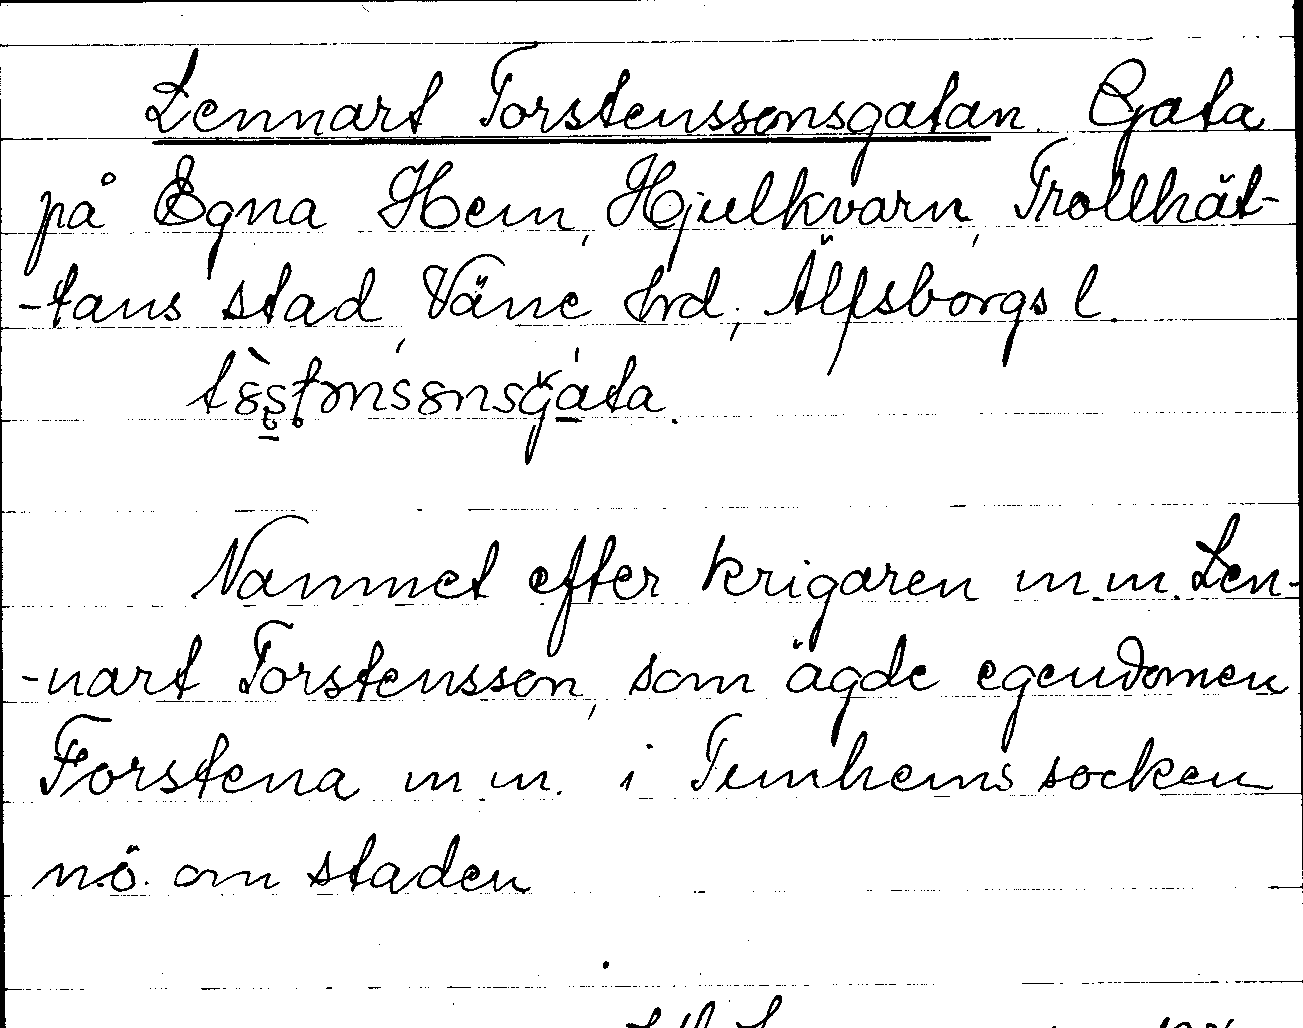 Lennart Torstenssonsgatan. Gata
på Egna Hem, Hjulkvarn, Trollhät-
-tans stad, Väne hrd, Älfsborgs l.
Namnet efter krigaren m.m. Len-
-nart Torstensson, som ägde egendomen
Forstena m.m. i Tunhems socken
n.ö. om staden